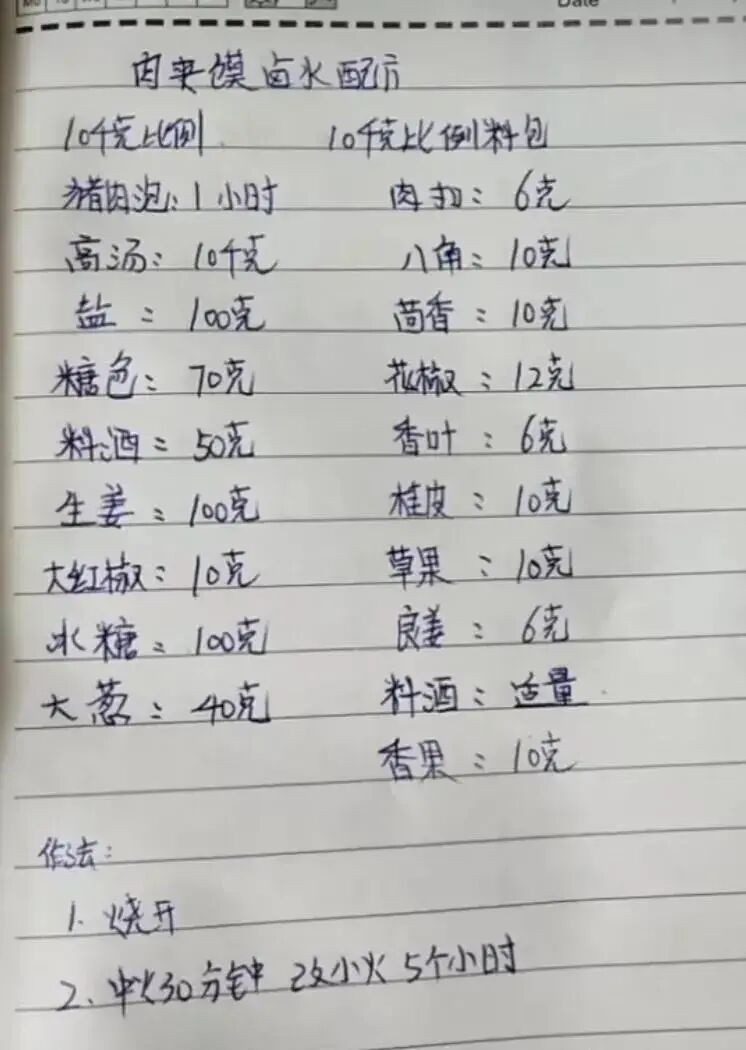 Date
肉夹馍卤水配方
10千克比例 10千克比例料包
猪肉泡:1小时 肉扣:6克
高汤:10千克 八角:10克
盐:100克 茴香:10克
糖色:70克 花椒:12克
料酒:50克 香叶:6克
生姜:100克 桂皮:10克
大红椒:10克 草果:10克
冰糖:100克 良姜:6克
大葱:40克 料酒:适量
香果:10克
作法:
1.烧开
2、中火30分钟 改小火 5个小时